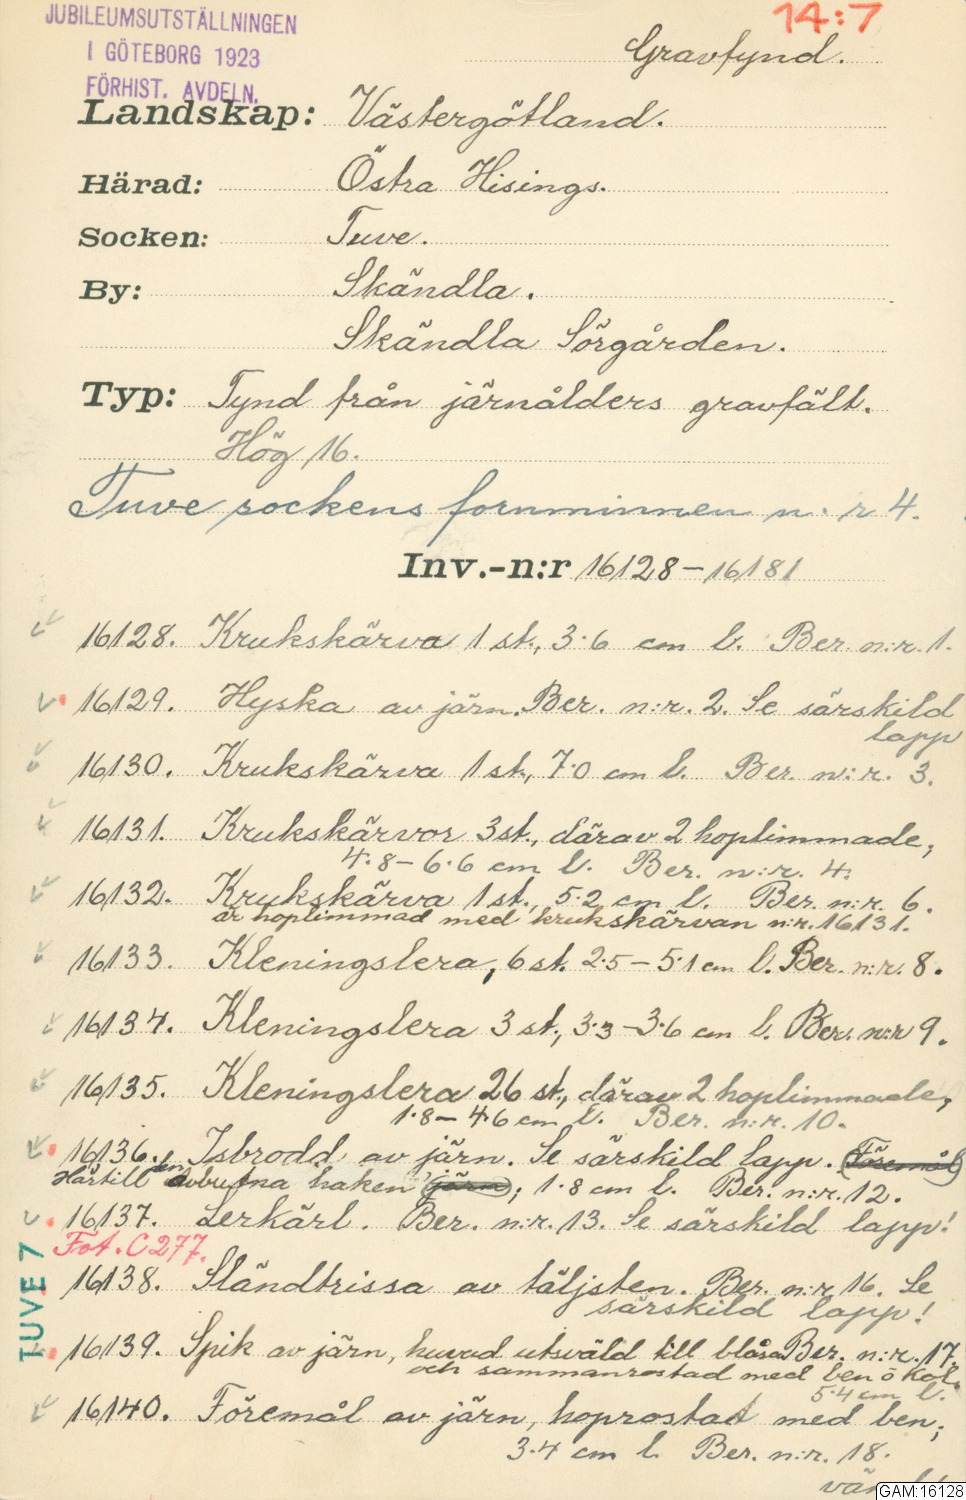 JUBILEUMSUTSTÄLLNINGEN
I GÖTEBORG 1923
FÖRHIST. AVDELN.
14:7
Gravfynd.
Landskap: Västergötland.
Härad: Östra Hisings.
Socken: Tuve.
By: Skändla.
Skändla Sörgården.
Typ: Fynd från järnålders gravfält.
Hög 16.
Tuve sockens fornminnen n:r 4.
Inv.-n:r 16128–16181
16128. Krukskärva 1 st., 3·6 cm l. Ber. n:r. 1.
16129. Hyska av järn. Ber. n:r. 2. Se särskild
lapp
16130. Krukskärva 1 st., 7·0 cm l. Ber. n:r. 3.
16131. Krukskärvor 3 st., därav 2 hoplimmade,
4·8–6·6 cm l. Ber. n:r. 4.
16132. Krukskärva 1 st., 5·2 cm l. Ber. n:r. 6.
är hoplimmad med krukskärvan n:r. 16131.
16133. Kleningslera, 6 st. 2·5–5·1 cm l. Ber. n:r. 8.
16134. Kleningslera 3 st., 3·3–3·6 cm l. Ber. n:r 9.
16135. Kleningslera 26 st., därav 2 hoplimmade,
1·8–4·6 cm l. Ber. n:r. 10.
16136. Isbrodd av järn. Se särskild lapp. (Föremål)
Härtill den avbrutna haken (järn); 1·8 cm l. Ber. n:r. 12.
16137. Lerkärl. Ber. n:r. 13. Se särskild lapp!
Fot. C 277.
16138. Sländtrissa av täljsten. Ber. n:r 16. Se
särskild lapp!
TUVE 7
16139. Spik av järn, huvud utsväld till blåsa Ber. n:r. 17.
och sammanrostad med ben o kol.
5·4 cm l.
16140. Föremål av järn, hoprostat med ben;
3·4 cm l. Ber. n:r. 18.
GAM:16128